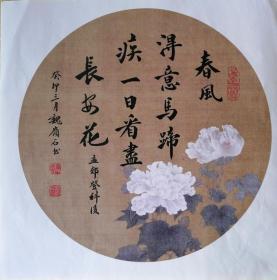 春風
得意馬蹄
疾一日看盡
長安花
孟郊登科後
癸卯三月魏嶺石書